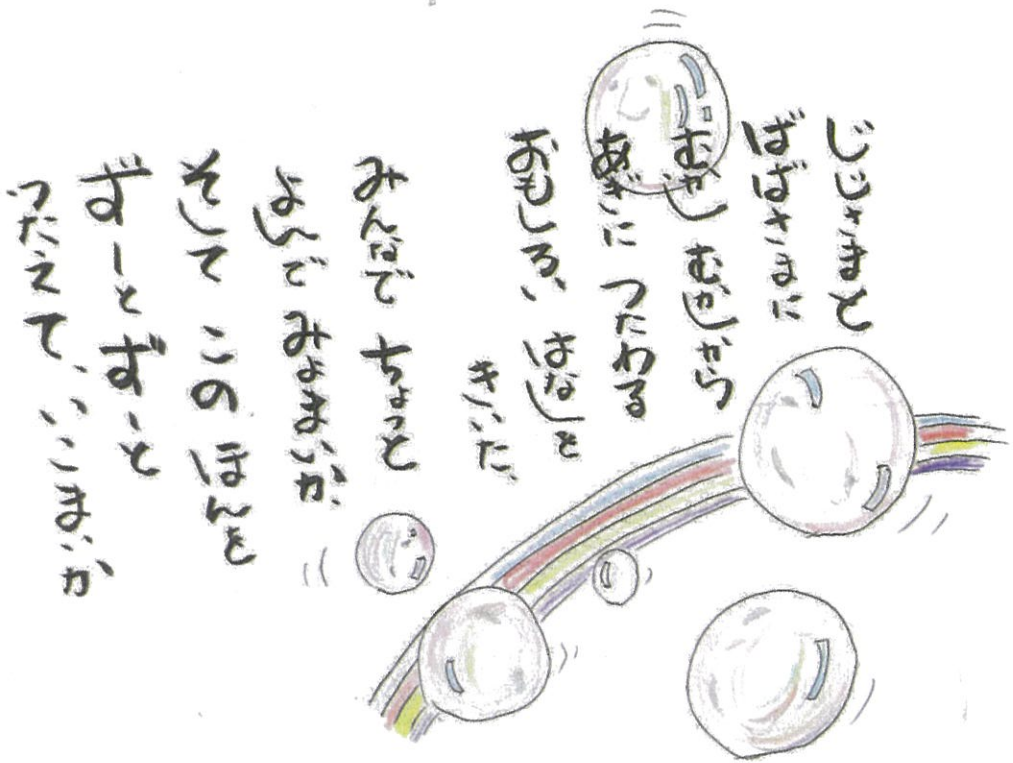 じじさまと
ばばさまに
むかし むかしから
あぎに つたわる
おもしろい はなしを
きいた、
みんなで ちょっと
よんで みよまいか、
そして このほんを
ずーと ずーと
つたえて、いこまいか